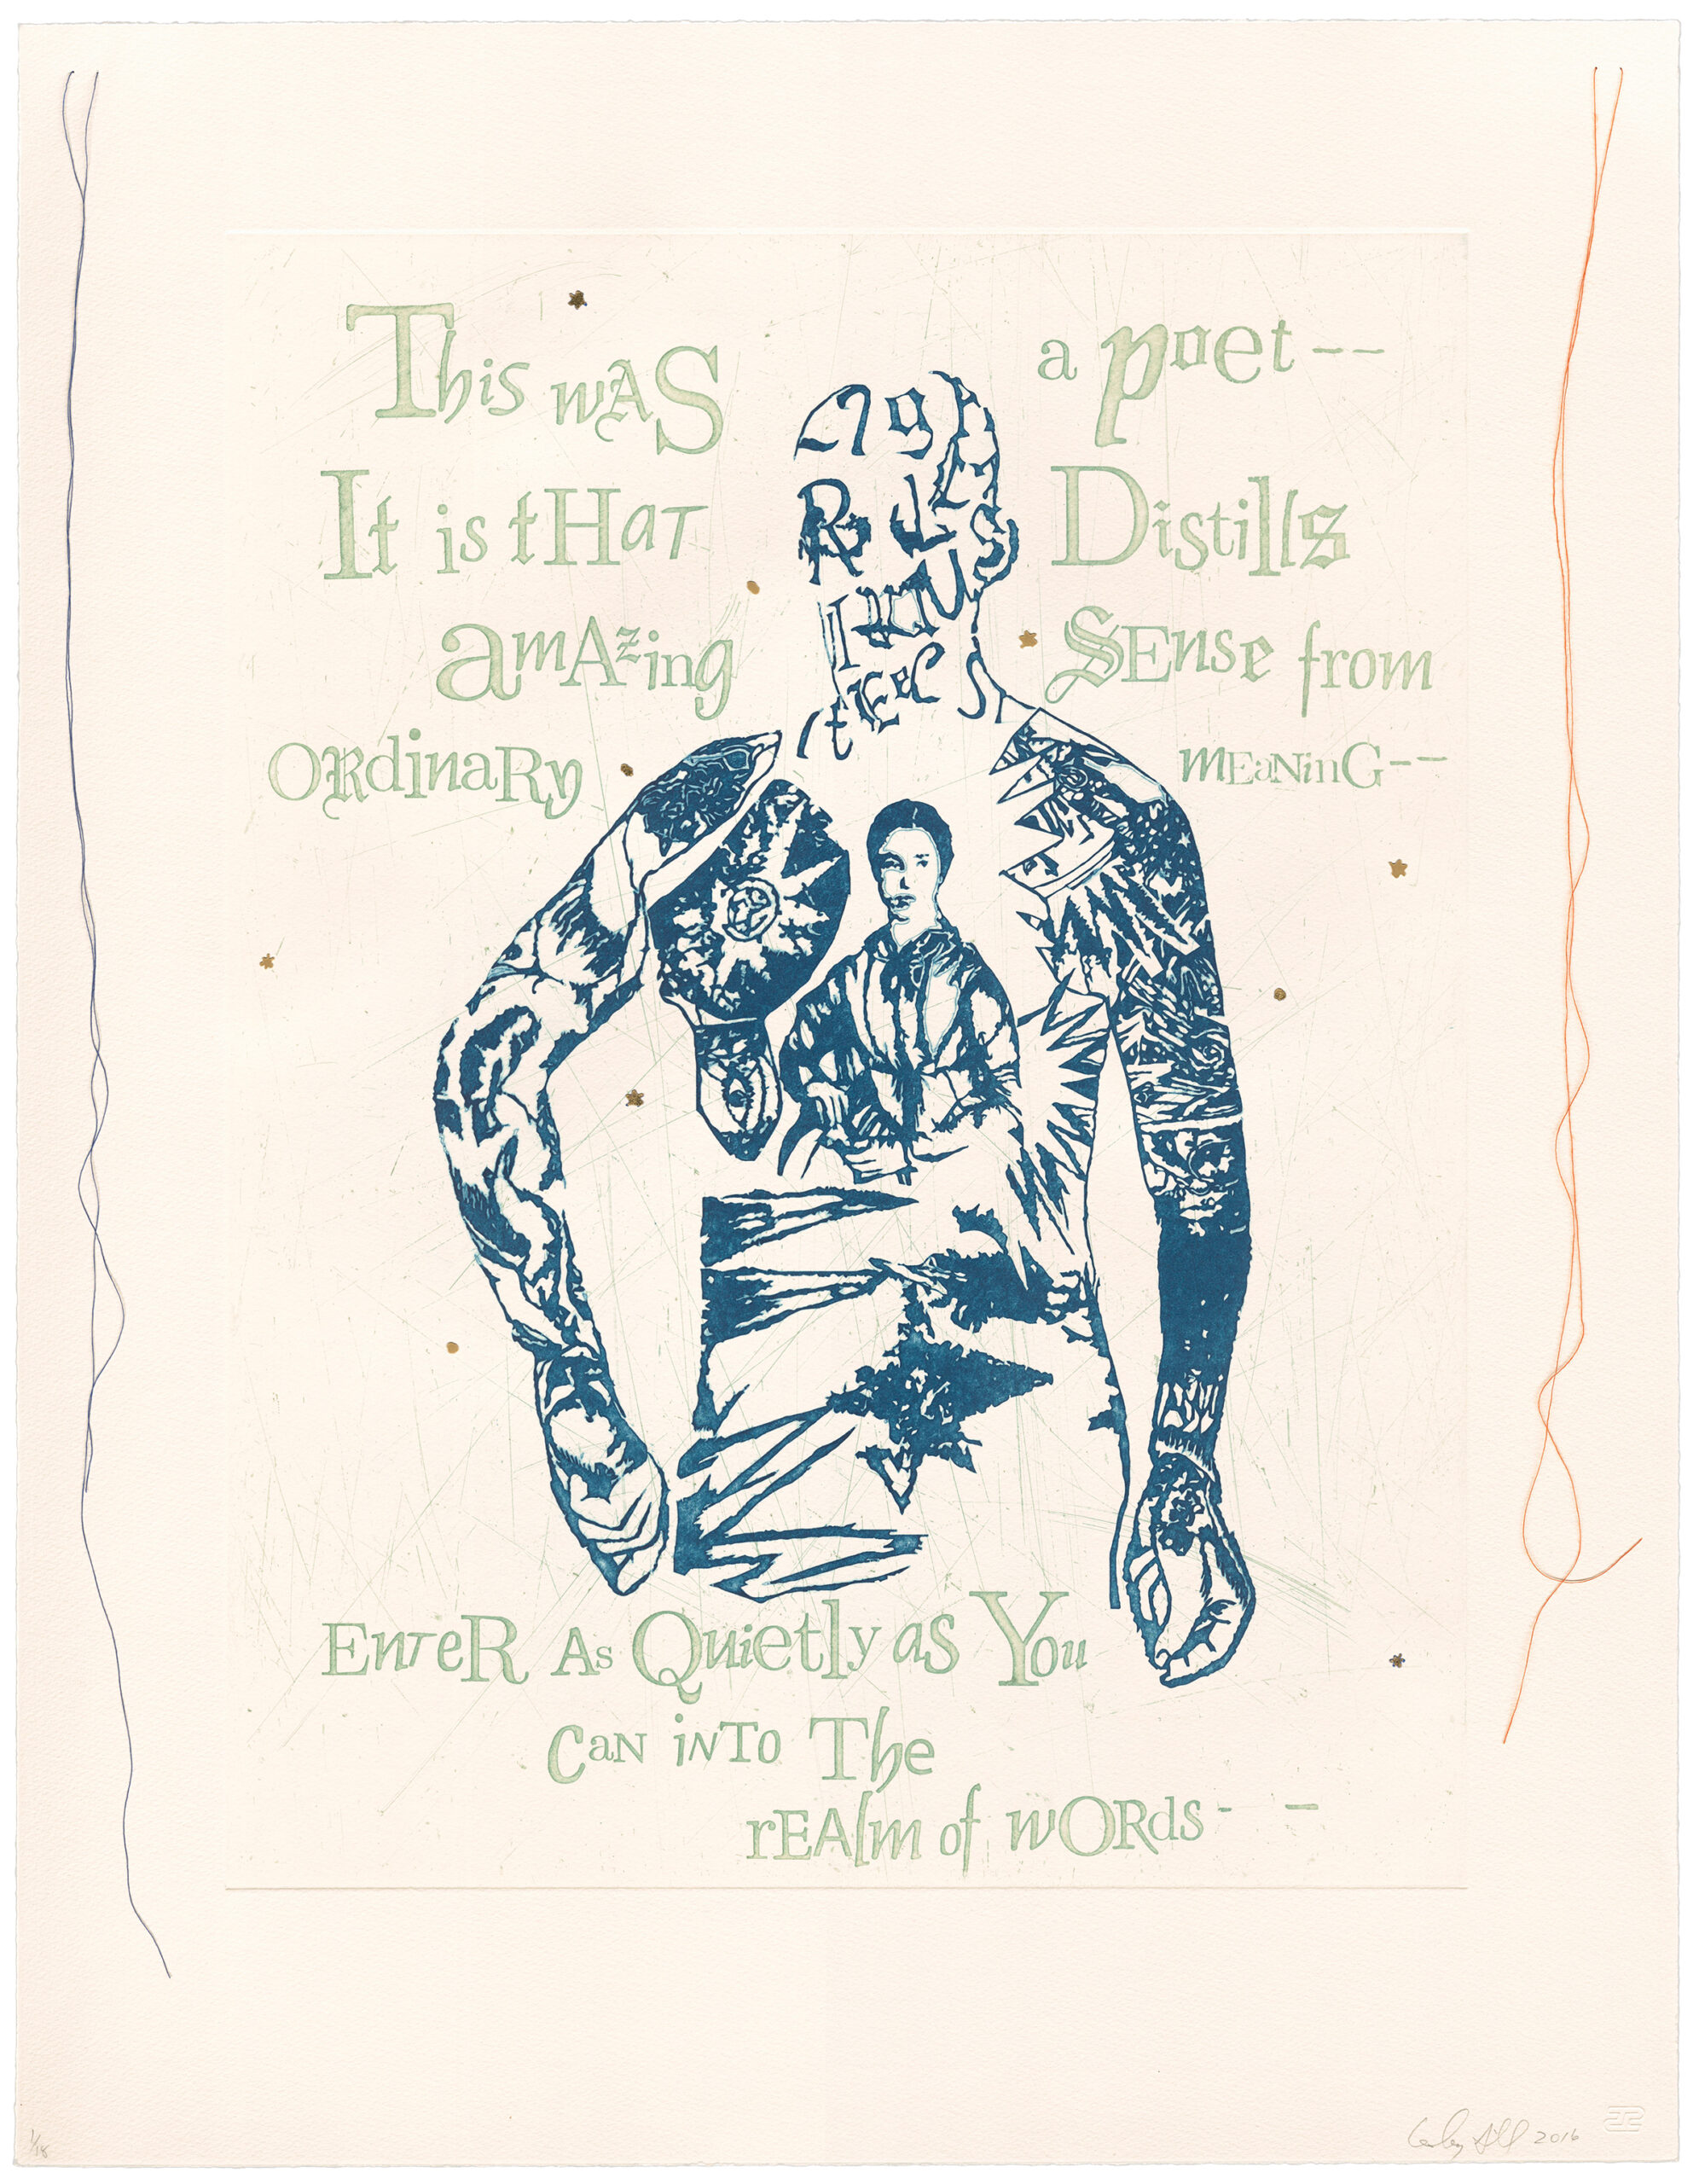 This wAS a poet--
It is tHaT Distills
amAzing SEnse from
ORdinaRy mEaNinG--
EnTeR As Quietly as You
CaN iNTo The
rEAlm of wORds- -
1/18
2016